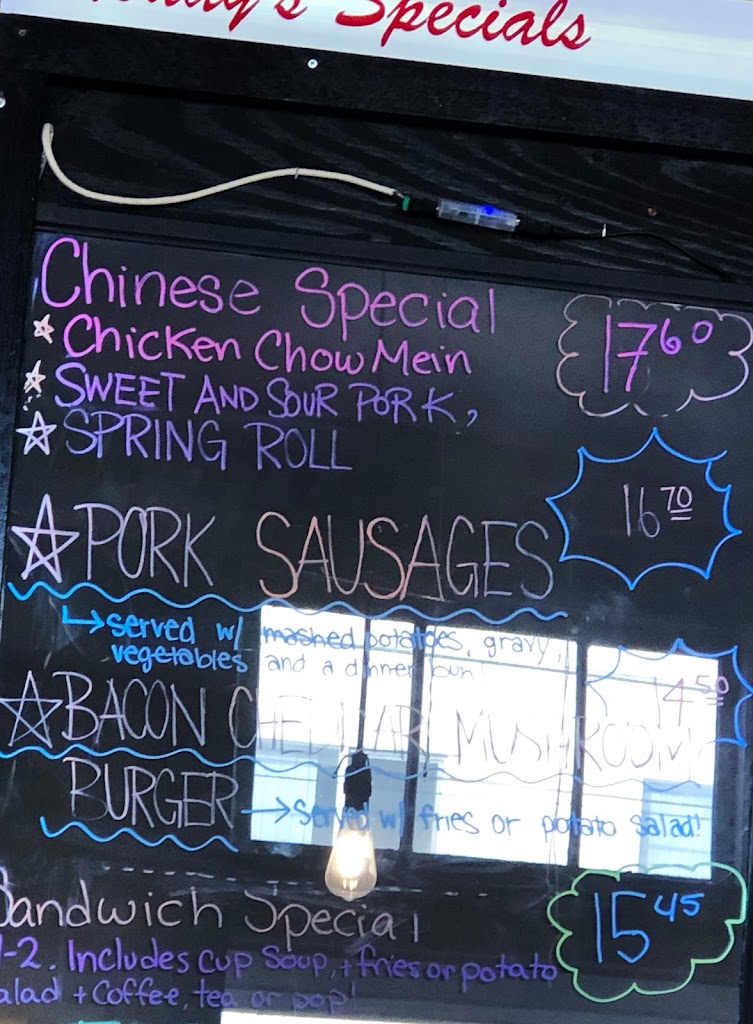 Specials
Chinese Special
Chicken Chow Mein 17 60
SWEET AND SOUR PORK,
SPRING ROLL
16 70
PORK SAUSAGES
served w/ mashed potatoes, gravy,
vegetables and a dinner bun!
14 50
BACON CHEDDAR MUSHROOM
BURGER served w/ fries or potato salad!
Sandwich Special 15 45
1-2. Includes cup Soup, + fries or potato
alad + Coffee, tea or pop!